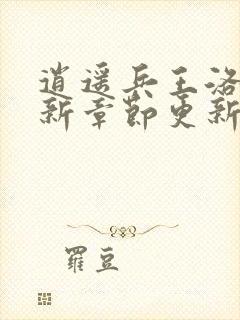 逍遥兵王洛
新章节更新
罗豆